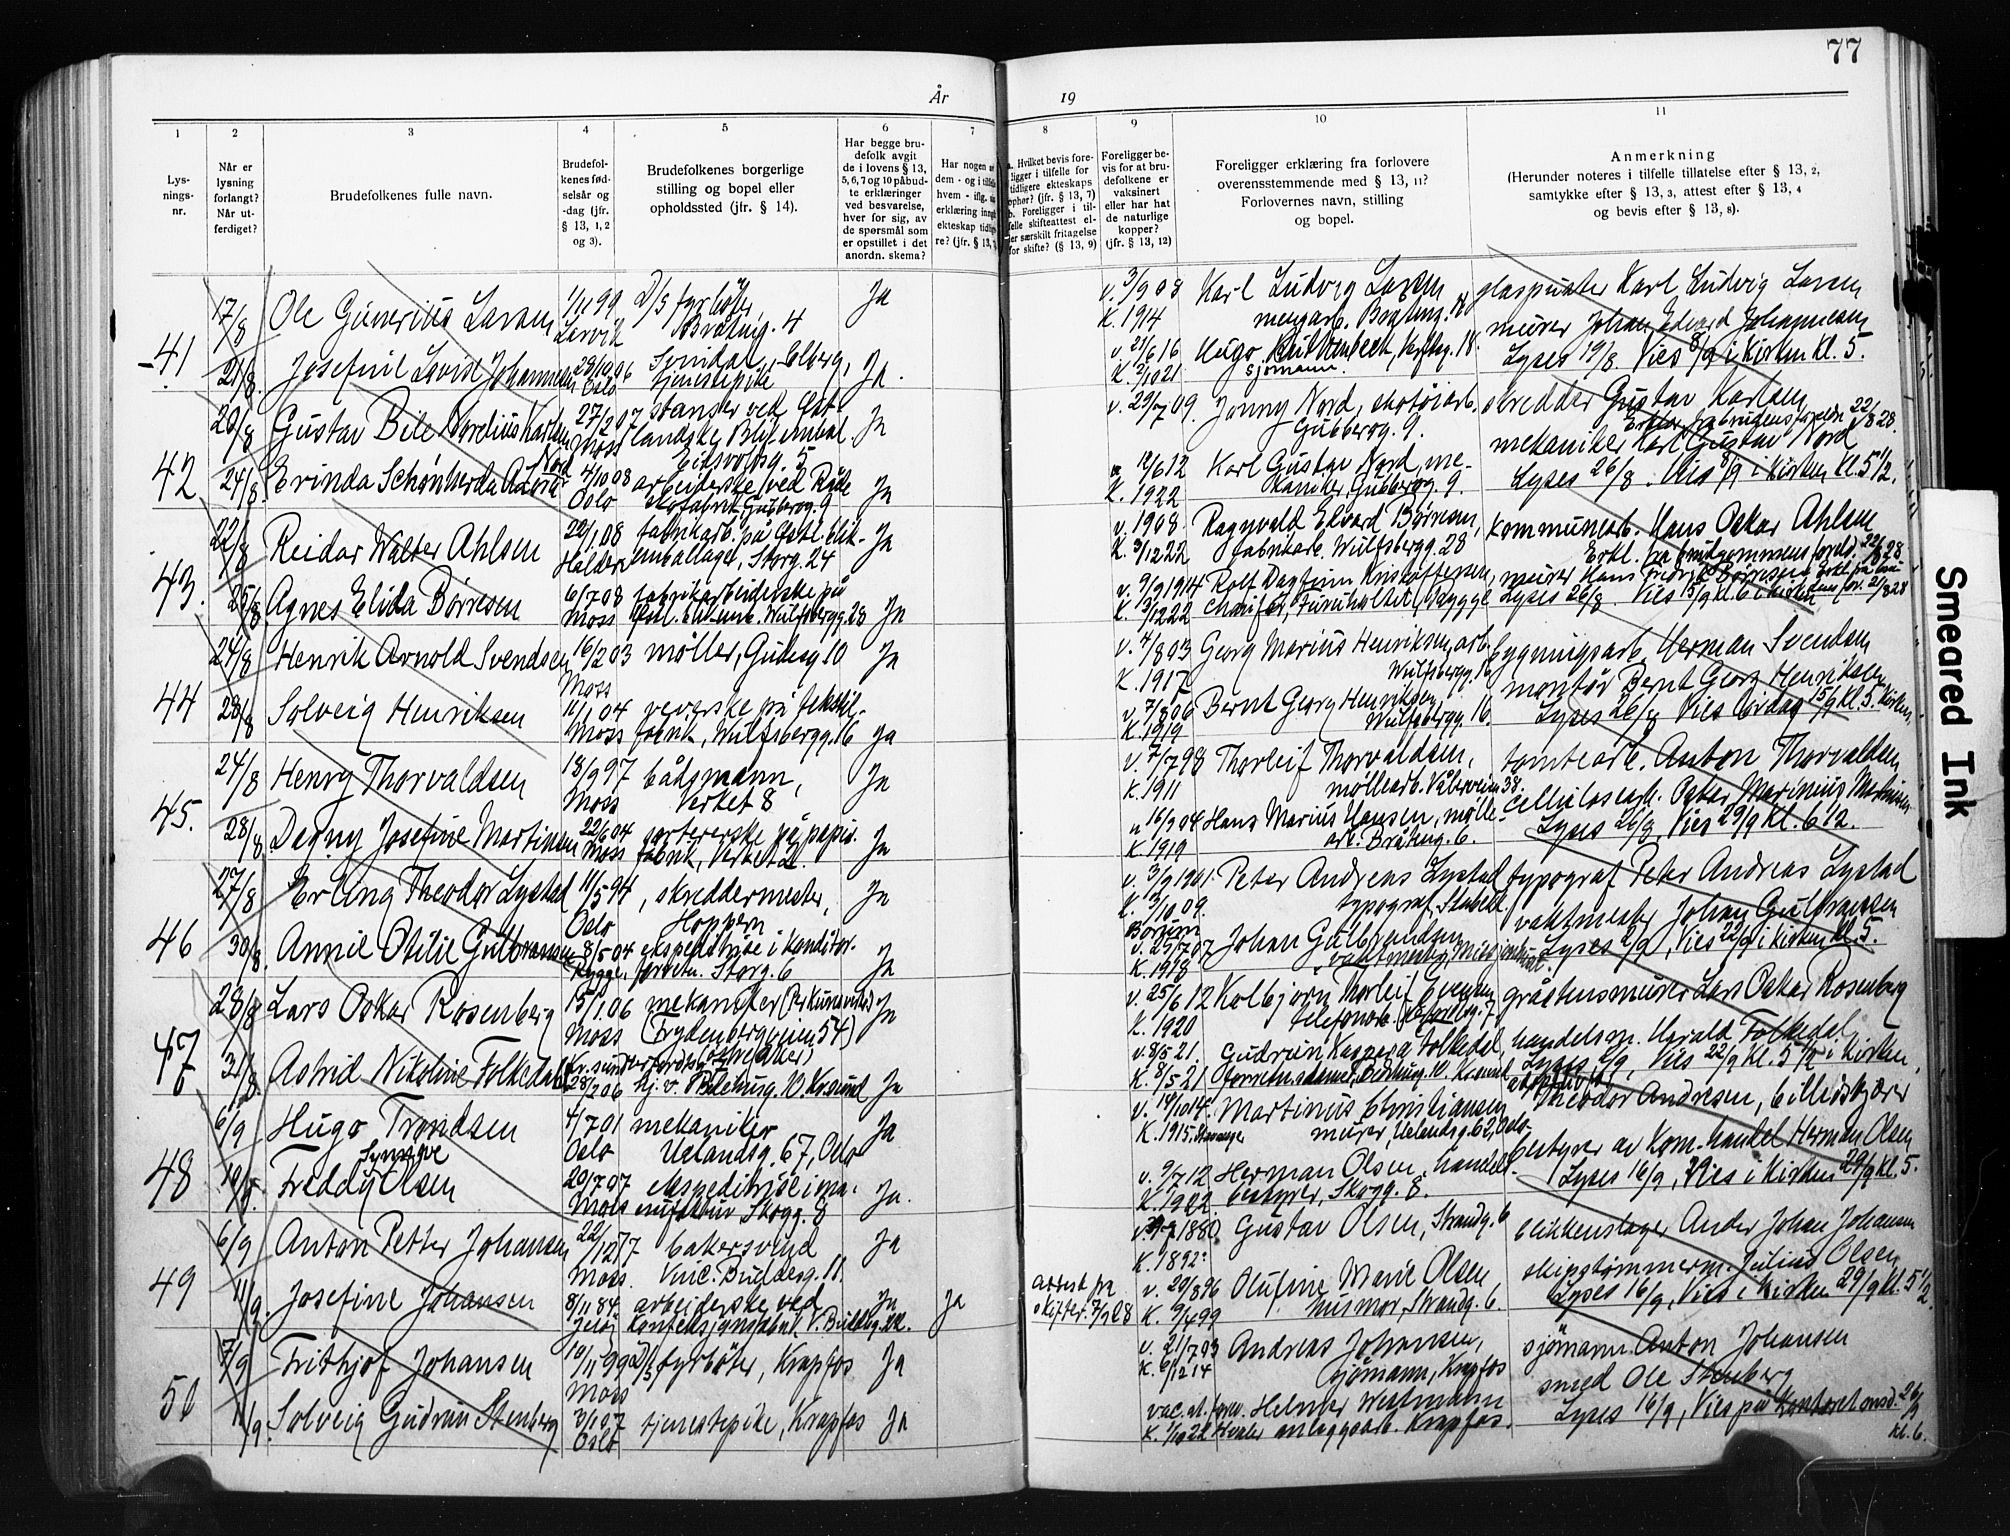 77
År 19
1 2 3 4 5 6 7 8 9 10 11
Lys-
nings-
nr.
Når er
lysning
forlangt?
Når ut-
ferdiget?
Brudefolkenes fulle navn.
Brudefol-
kenes fød-
selsår og
-dag (jfr.
§ 13, 1, 2
og 3).
Brudefolkenes borgerlige
stilling og bopel eller
opholdssted (jfr. § 14).
Har begge bru-
defolk avgit
de i lovens § 13,
5, 6, 7 og 10 påbud-
te erklæringer
ved besvarelse,
hver for sig, av
de spørsmål som
er opstillet i det
anordn. skema?
Har nogen av
dem - og i tilfelle
hvem - iflg.
erklæring inngått
ekteskap tidlige-
re? (jfr. § 13,
a. Hvilket bevis fore-
ligger i tilfelle for
tidligere ekteskaps
ophør? (jfr. § 13, 7)
b. Foreligger i til-
felle skifteattest el-
ler særskilt fritagelse
for skifte? (§ 13, 9)
Foreligger be-
vis for at bru-
defolkene er
vaksinert
eller har hat
de naturlige
kopper?
(jfr. § 13, 12)
Foreligger erklæring fra forlovere
overensstemmende med § 13, 11?
Forlovernes navn, stilling
og bopel.
Anmerkning
(Herunder noteres i tilfelle tillatelse efter § 13, 2,
samtykke efter § 13, 3, attest efter § 13, 4
og bevis efter § 13, 8).
41
17/8 Ole Gunerius Larsen 1/11 99 D/S fyrbøter, Ja
Larvik Bråteng. 4
v. 3/9 08 Karl Ludvig Larsen glasspuster Karl Ludvig Larsen
K. 1914 murer Johan Edvard Johannesen
21/8 Josefine Lovise Johannesen Oslo tjenestepike Ja.
v. 21/6 16 Hugo
K. 2/10 21 sjømann. Lyses 19/8. Vies 8/9 i Kirken Kl. 5.
42
20/8 Gustav Karlsen 27/2 07 stanser ved Øst- Ja
Moss landske Blik embal.
Eidsvollsg. 5
v. 29/7 09. Jonny Nord, skotøiarb. skredder Gustav Karlsen
Gubberog. 9. Erklær. fra brudens foreldre 22/8 28.
mekaniker Karl Gustav Nord
24/8 Erinda Nord 4/10 08 arbeiderske ved Råde Ja
Oslo skofabrik, Gubberog. 9
12/6 12 Karl Gustav Nord, me-
K. 1922 kaniker, Gubberog. 9. Lyses 26/8. Vies 8/9 i Kirken Kl. 5 1/2.
43.
22/8 Reidar Walter Ahlsen 22/1 08 fabrikarb. på Østl. blik- Ja
Halden emballage, Storg. 24
v. 1908 Ragnvald Edvard Børresen, Kommunearb. Hans Oskar Ahlsen
K. 3/12 22 fabrikarb. Wulfsbergg. 28 Erkl. fra brudgommens foreld. 22/8 28
25/8 Agnes Elida Børresen 6/7 08 fabrikarbeiderske på
Moss Wulfsbergg. 28 Ja
v. 9/9 1914 Rolf Dagfinn Kristoffersen, murer Hans Fredrik Børresen
K. 13/12 22 chauffør, Furuholtet, Rygge Lyses 26/8. Vies 15/9 Kl. 6 i Kirken
44
24/8 Henrik Arnold Svendsen 16/2 03 møller, Gudesg. 10 Ja
Moss
v. 4/8 03 Georg Marius Henriksen, arb. bygningsarb. Herman Svendsen
K. 1917 Wulfsbergg. 16 montør Bernt Georg Henriksen
28/8 Solveig Henriksen 11/1 04 veverske på tekstil-
Moss fabrik, Wulfsbergg. 16 ja
v. 7/8 06 Bernt Georg Henriksen
K. 1919 Wulfsbergg. 16. Lyses 26/8 Vies lørdag 15/9 Kl. 5. Kirken
45.
24/8 Henry Thorvaldsen 18/9 97 båtsmann, Ja
Moss Verket 8
v. 7/7 98 Thorleif Thorvaldsen, tomtearb. Anton Thorvaldsen
K. 1911 møllearb. Vålerveien 38. Cellulosearb. Peter Marinius Martinsen
28/8 Dagny Josefine Martinsen 22/6 04 sortererske på papir-
Moss fabrik, Verket 2. Ja
v. 16/9 04 Hans Marius Hansen, mølle-
K. 1919 arb. Bråteng. 6. Lyses 26/8, Vies 29/9 Kl. 6 1/2.
46
27/8 Erling Theodor Lystad 11/5 94, skreddermester, Ja
Oslo Hoppern
v. 3/9 1901. Peter Andreas Lystad typograf Peter Andreas Lystad
K. 3/10 09. typograf, vaktmester Johan Gulbransen
30/8. Annie Otilie Gulbransen 8/5 04 ekspeditrise i Konditor-
Rygge, forretn. Storg. 6 Ja
v. 27/7 07 Johan Gulbrandsen
K. 1918 vaktmester, Lyses 2/9, Vies 22/9 i Kirken Kl. 5.
47
28/8 Lars Oskar Rosenberg 15/1.06 mekaniker (Per Kunsvisted) Ja
Moss (Frydenbergveien 54)
v. 25/6 12 Kolbjørn Thorleif Evensen gråstensmurer Lars Oskar Rosenberg
K. 1920 handelsm. Harald Folkedal
31/8 Astrid Nikoline Folkedal Kr.sund
28/2 06 hj. v. 10 Kr.sund Ja
v. 8/5 21. Gudrun Kaspara Folkedal,
K. 8/5 21 Lyses 2/9, Vies 22/9 Kl. 5 1/2 i Kirken,
48
6/9 Hugo Trondsen 4/7 01 mekaniker Ja
Oslo Uelandsg. 67, Oslo
v. 14/10 14. Martinus Christiansen Theodor Andresen, billedskjærer
K. 1915. murer, Uelandsg. 62, Oslo.
bestyrer av Kom. handel Herman Olsen
10/9. Freddy Synnøve Olsen 20/7 07 ekspeditrise i ma- Ja.
Moss nufaktur Skogg. 8
v. 9/7 12 Herman Olsen, handels-
K. 1922 bestyrer, Skogg. 8. Lyses 16/9, Vies i Kirken 29/9 Kl. 5.
49
6/9 Anton Petter Johansen 22/12 77 bakersvend Ja
Moss. Vinc. Buddesg. 11.
1880 Gustav Olsen, Strandg. 6 blikkenslager Ander Johan Johansen
K. 1892. skipstømmerm. Julius Olsen,
11/9 Josefine Johansen 8/11 84. arbeiderske ved Ja Ja
Jeløy Konfeksjonsfabrik V. Buddesg.
Attest fra
skifter. 7/9 28
v. 29/8 96 Olufine Marie Olsen,
K. 9/4 99 husmor, Strandg. 6. Lyses 16/9, Vies i Kirken 29/9 Kl. 5 1/2.
50
7/9 Frithjof Johansen 10/11 99 D/S fyrbøter, Krapfos Ja
Moss
v. 21/7 03 Andreas Johansen, sjømann Anton Johansen
K. 6/12 14 sjømann, Krapfos smed Ole Stenberg
11/9. Solveig Gudrun Stenberg 3/1 07 tjenestepike, Krapfos Ja
Oslo
Helmer Westmann
K. 1/10 22 anleggsarb. Krapfos. Lyses 16/9, Vies på Kontoret onsd. 26/9
Kl. 6.
Smeared Ink